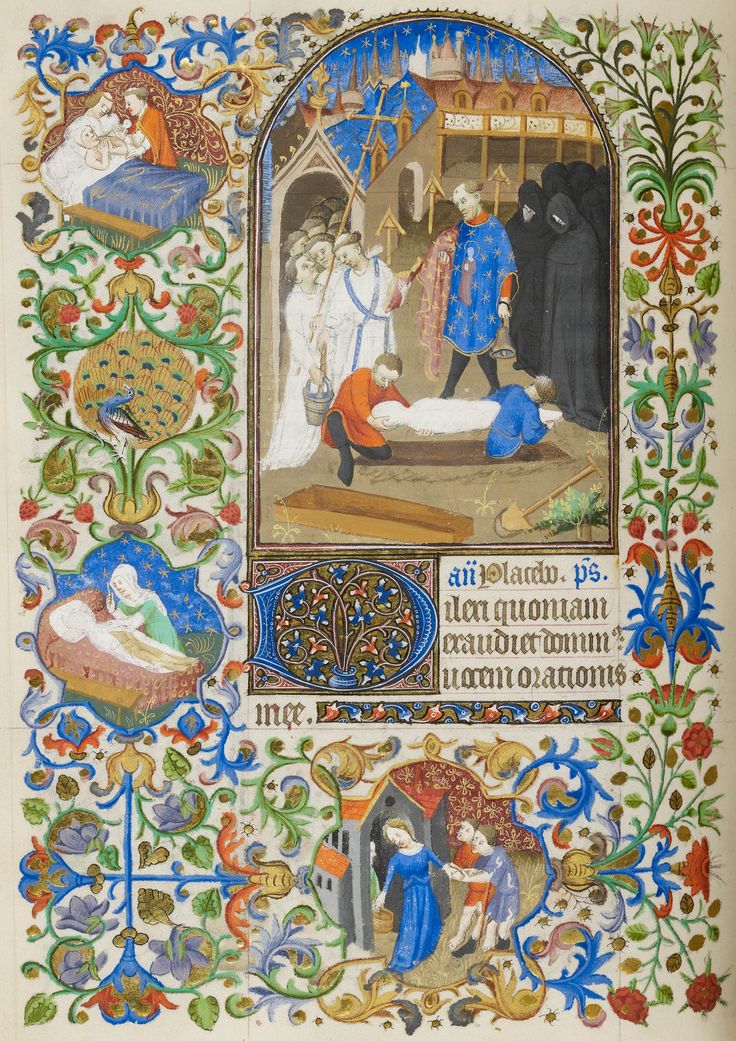 añ Placebo. p̄s.
Dilexi quoniam
exaudiet dominꝰ
uocem orationis
mee.